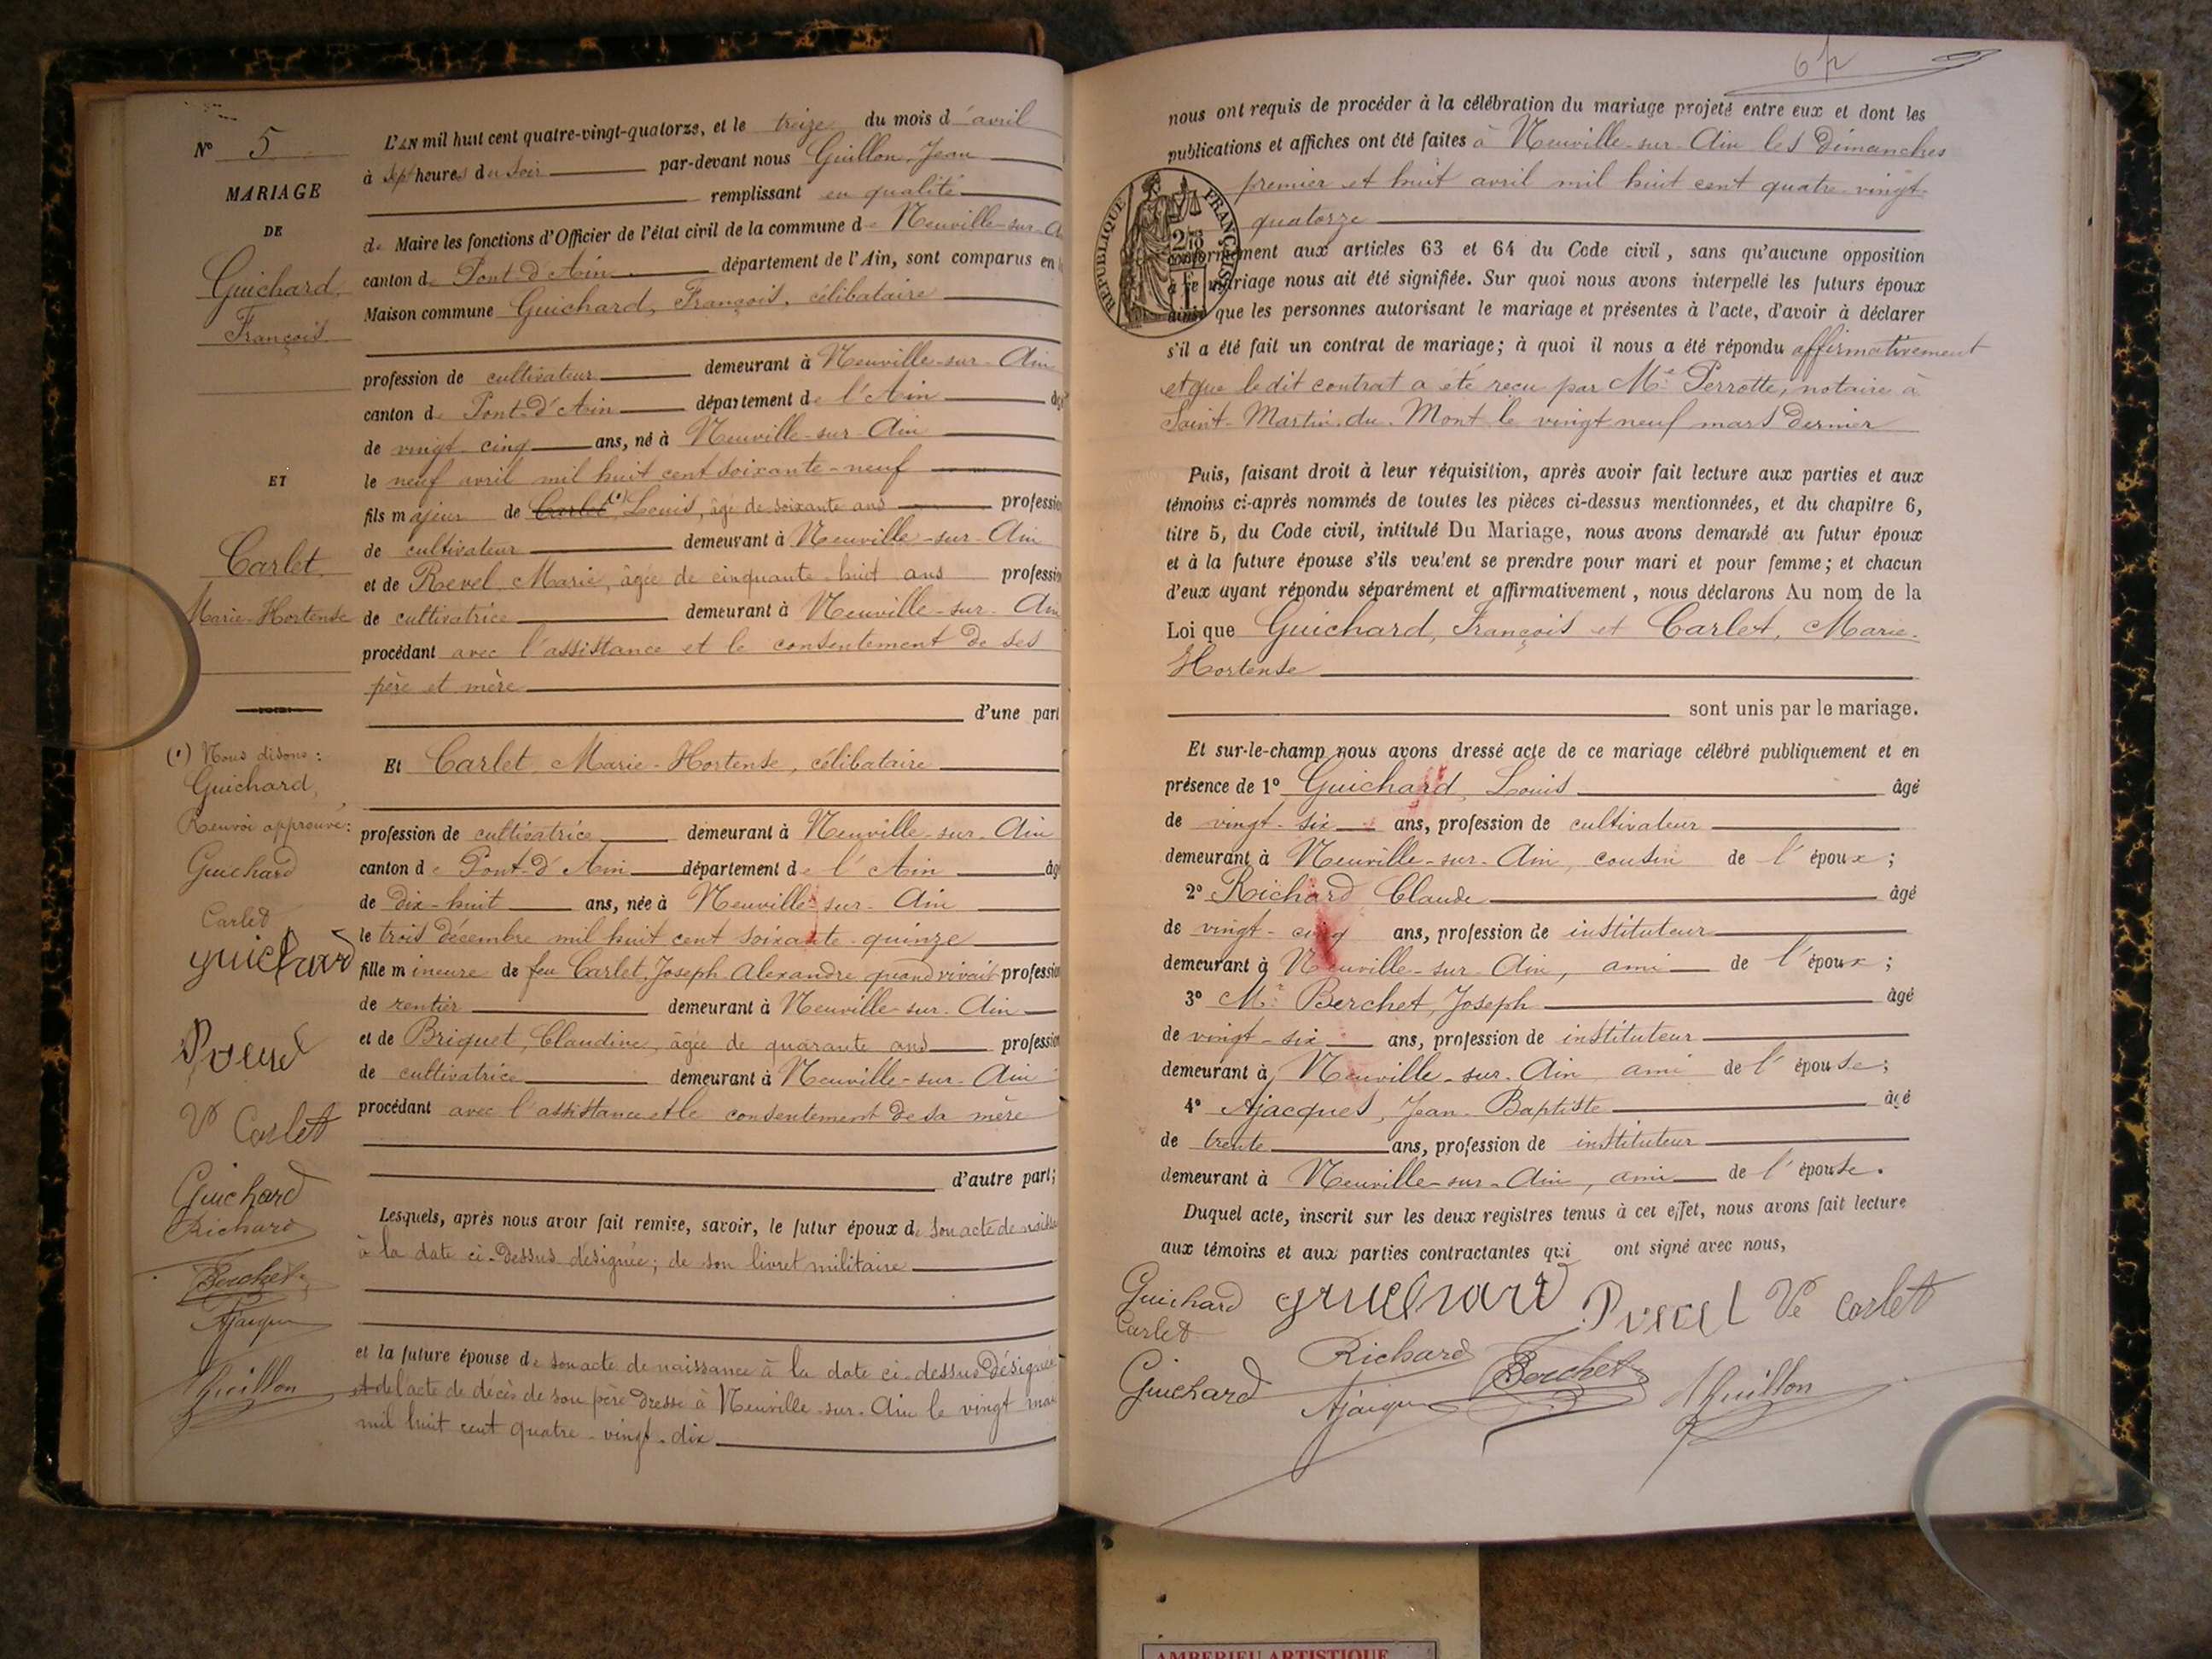 N° 5
MARIAGE
DE
Guichard
François
ET
Carlet
Marie-Hortense
(1) Nous disons :
Guichard,
Renvoi approuvé :
Guichard
Carlet
guichard
Revel
Ve Carlet
Guichard
Richard
Berchet
Ajacques
Guillon
L'AN mil huit cent quatre-vingt-quatorze, et le treize du mois d'avril
à sept heures du soir par-devant nous Guillon Jean
remplissant en qualité
de Maire les fonctions d'Officier de l'état civil de la commune de Neuville-sur-A
canton de Pont-d'Ain département de l'Ain, sont comparus en
Maison commune Guichard, François, célibataire
profession de cultivateur demeurant à Neuville-sur-Ain
canton de Pont-d'Ain département de l'Ain âg
de vingt cinq ans, né à Neuville-sur-Ain
le neuf avril mil huit cent soixante-neuf
fils majeur de Carlet (1) Louis, âgé de soixante ans professio
de cultivateur demeurant à Neuville-sur-Ain
et de Revel Marie, âgée de cinquante huit ans professio
de cultivatrice demeurant à Neuville-sur-Ain
procédant avec l'assistance et le consentement de ses
père et mère
d'une part
Et Carlet Marie-Hortense, célibataire
profession de cultivatrice demeurant à Neuville-sur-Ain
canton de Pont-d'Ain département de l'Ain âg
de dix-huit ans, née à Neuville-sur-Ain
le trois décembre mil huit cent soixante-quinze
fille mineure de feu Carlet Joseph Alexandre quand vivait professio
de rentier demeurant à Neuville-sur-Ain
et de Briquet, Claudine, âgée de quarante ans professio
de cultivatrice demeurant à Neuville-sur-Ain
procédant avec l'assistance et le consentement de sa mère
d'autre part;
Lesquels, après nous avoir fait remise, savoir, le futur époux de son acte de naissa
à la date ci-dessus désignée; de son livret militaire
et la future épouse de son acte de naissance à la date ci-dessus désignée
et de l'acte de décès de son père dressé à Neuville-sur-Ain le vingt mai
mil huit cent quatre-vingt-dix
nous ont requis de procéder à la célébration du mariage projeté entre eux et dont les
publications et affiches ont été faites à Neuville-sur-Ain les dimanches
premier et huit avril mil huit cent quatre-vingt-
quatorze
RÉPUBLIQUE FRANÇAISE
conformément aux articles 63 et 64 du Code civil, sans qu'aucune opposition
à ce mariage nous ait été signifiée. Sur quoi nous avons interpellé les futurs époux
ainsi que les personnes autorisant le mariage et présentes à l'acte, d'avoir à déclarer
s'il a été fait un contrat de mariage; à quoi il nous a été répondu affirmativement
et que le dit contrat a été reçu par Me Perrotte, notaire à
Saint-Martin-du-Mont le vingt neuf mars dernier
Puis, faisant droit à leur réquisition, après avoir fait lecture aux parties et aux
témoins ci-après nommés de toutes les pièces ci-dessus mentionnées, et du chapitre 6,
titre 5, du Code civil, intitulé Du Mariage, nous avons demandé au futur époux
et à la future épouse s'ils veulent se prendre pour mari et pour femme; et chacun
d'eux ayant répondu séparément et affirmativement, nous déclarons Au nom de la
Loi que Guichard, François et Carlet, Marie-
Hortense
sont unis par le mariage.
Et sur-le-champ nous avons dressé acte de ce mariage célébré publiquement et en
présence de 1° Guichard, Louis âgé
de vingt-six ans, profession de cultivateur
demeurant à Neuville-sur-Ain, cousin de l'époux;
2° Richard Claude âgé
de vingt-cinq ans, profession de instituteur
demeurant à Neuville-sur-Ain, ami de l'époux;
3° Mr Berchet, Joseph âgé
de vingt-six ans, profession de instituteur
demeurant à Neuville-sur-Ain ami de l'épouse;
4° Ajacques, Jean-Baptiste âgé
de trente ans, profession de instituteur
demeurant à Neuville-sur-Ain, ami de l'épouse.
Duquel acte, inscrit sur les deux registres tenus à cet effet, nous avons fait lecture
aux témoins et aux parties contractantes qui ont signé avec nous,
Guichard guichard Revel Ve Carlet
Carlet
Richard Berchet
Guichard Ajacques Guillon
AMBERIEU ARTISTIQUE